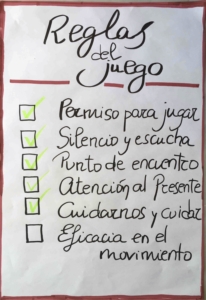 Reglas
del
juego
Permiso para jugar
Silencio y escucha
Punto de encuentro
Atención al Presente
Cuidarnos y cuidar
Eficacia en el
movimiento